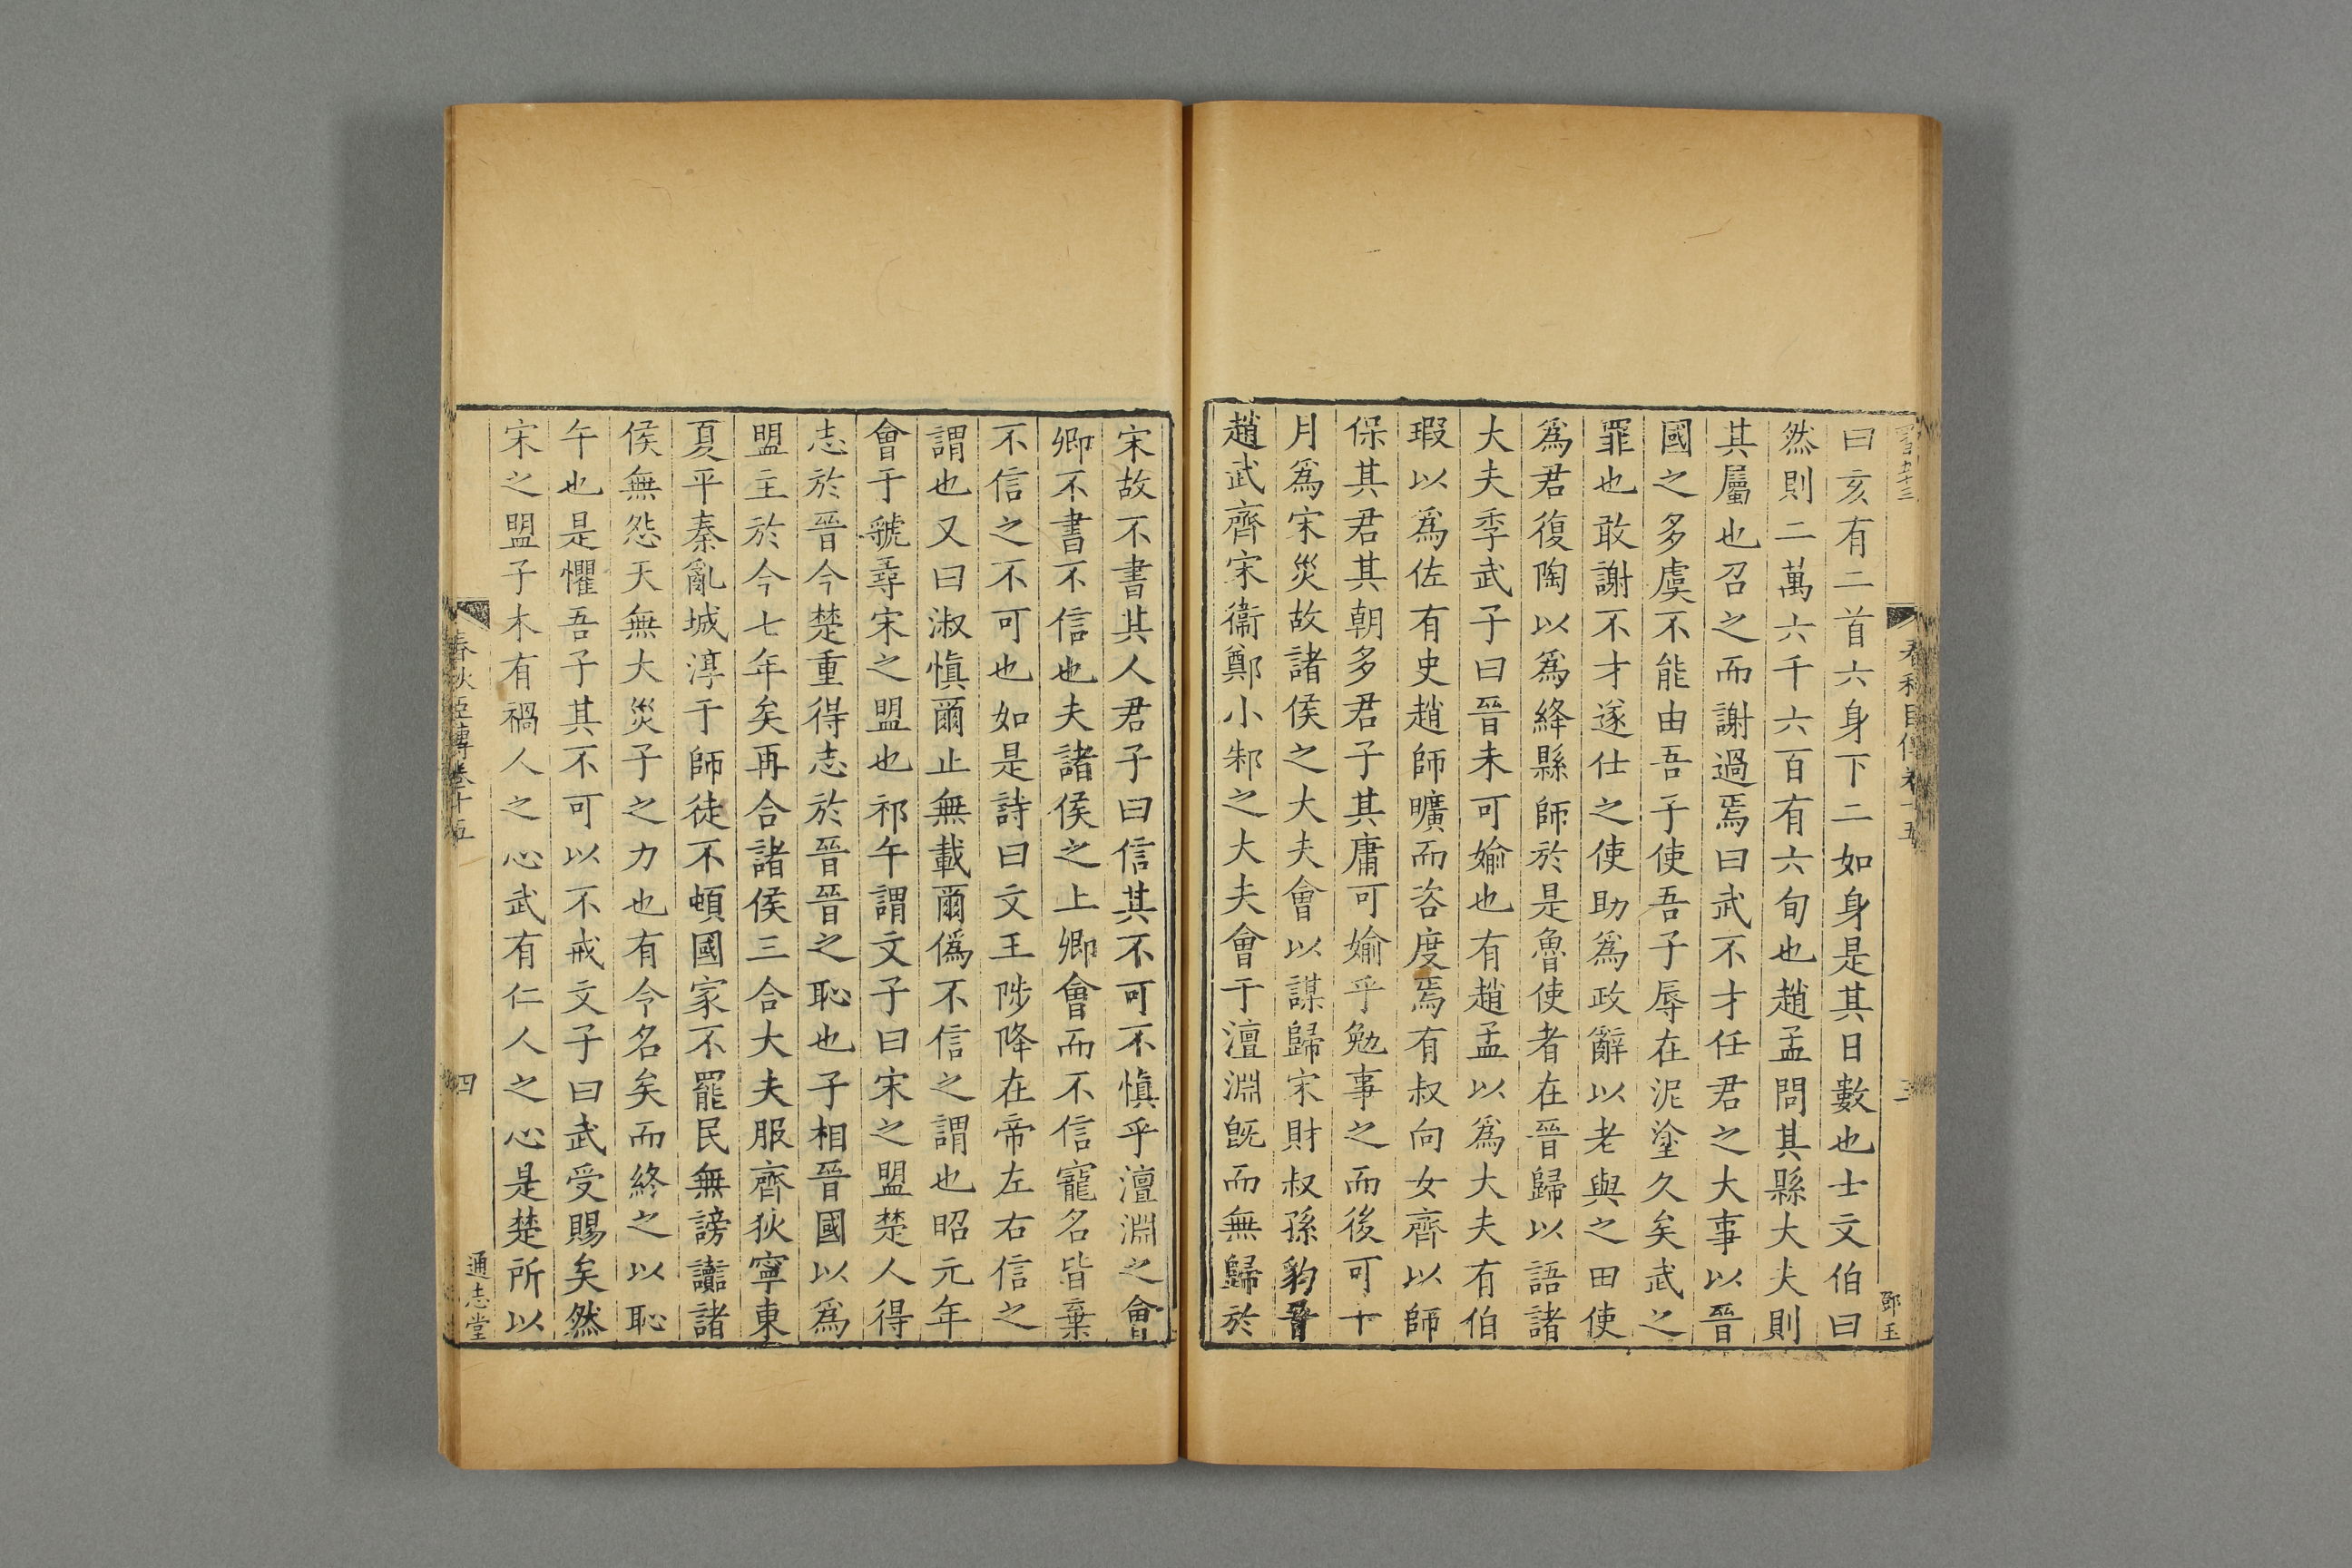 曰亥有二首六身下二如身是其日數也士文伯曰
然則二萬六千六百有六旬也趙孟問其縣大夫則
其屬也召之而謝過焉曰武不才任君之大事以晉
國之多虞不能由吾子使吾子辱在泥塗久矣武之
罪也敢謝不才遂仕之使助爲政辭以老與之田使
爲君復陶以爲絳縣師於是魯使者在晉歸以語諸
大夫季武子曰晉未可婾也有趙孟以爲大夫有伯
瑕以爲佐有史趙師曠而咨度焉有叔向女齊以師
保其君其朝多君子其庸可婾乎勉事之而後可十
月爲宋災故諸侯之大夫會以謀歸宋財叔孫豹晉
趙武齊宋衞鄭小邾之大夫會于澶淵旣而無歸於
宋故不書其人君子曰信其不可不愼乎澶淵之會
卿不書不信也夫諸侯之上卿會而不信寵名皆棄
不信之不可也如是詩曰文王陟降在帝左右信之
謂也又曰淑愼爾止無載爾僞不信之謂也昭元年
會于虢尋宋之盟也祁午謂文子曰宋之盟楚人得
志於晉今楚重得志於晉晉之恥也子相晉國以爲
盟主於今七年矣再合諸侯三合大夫服齊狄寧東
夏平秦亂城淳于師徒不頓國家不罷民無謗讟諸
侯無怨天無大災子之力也有令名矣而終之以恥
午也是懼吾子其不可以不戒文子曰武受賜矣然
宋之盟子木有禍人之心武有仁人之心是楚所以
春秋臣傳卷十五
四
通志堂